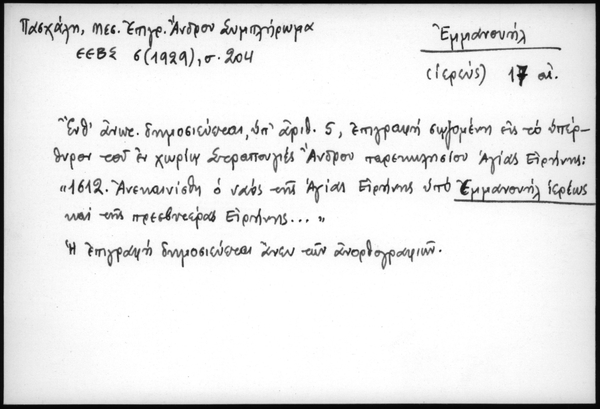 Πασχάλη, Μεσ. Ἐπιγρ. Ἄνδρου Συμπλήρωμα
ΕΕΒΣ 6 (1929), σ. 204
Ἐμμανουήλ
(ἱερεύς) 17 αἰ.
Ἔνθ' ἀνωτ. δημοσιεύεται, ὑπ' ἀριθ. 5, ἐπιγραφὴ σῳζομένη εἰς τὸ ὑπέρ-
θυρον τοῦ ἐν χωρίῳ Στραπουργιὲς Ἄνδρου παρεκκλησίου Ἁγίας Εἰρήνης:
"1612. Ἀνεκαινίσθη ὁ ναὸς τῆς Ἁγίας Εἰρήνης ὑπὸ Ἐμμανουὴλ ἱερέως
καὶ τῆς πρεσβυτέρας Εἰρήνης... "
Ἡ ἐπιγραφὴ δημοσιεύεται ἄνευ τῶν ἀνορθογραφιῶν.